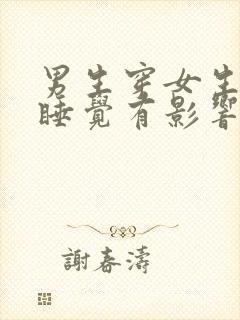 男生穿女生
睡覺有影響
謝春濤